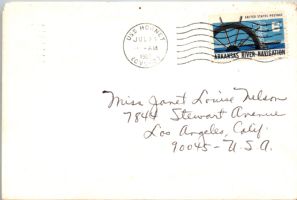 USS HORNET
JUL
AM
(CVS-12)
UNITED STATES POSTAGE
6¢
ARKANSAS RIVER NAVIGATION
Miss Janet Louise Nelson
7844 Stewart Avenue
Los Angeles, Calif.
90045-U.S.A.